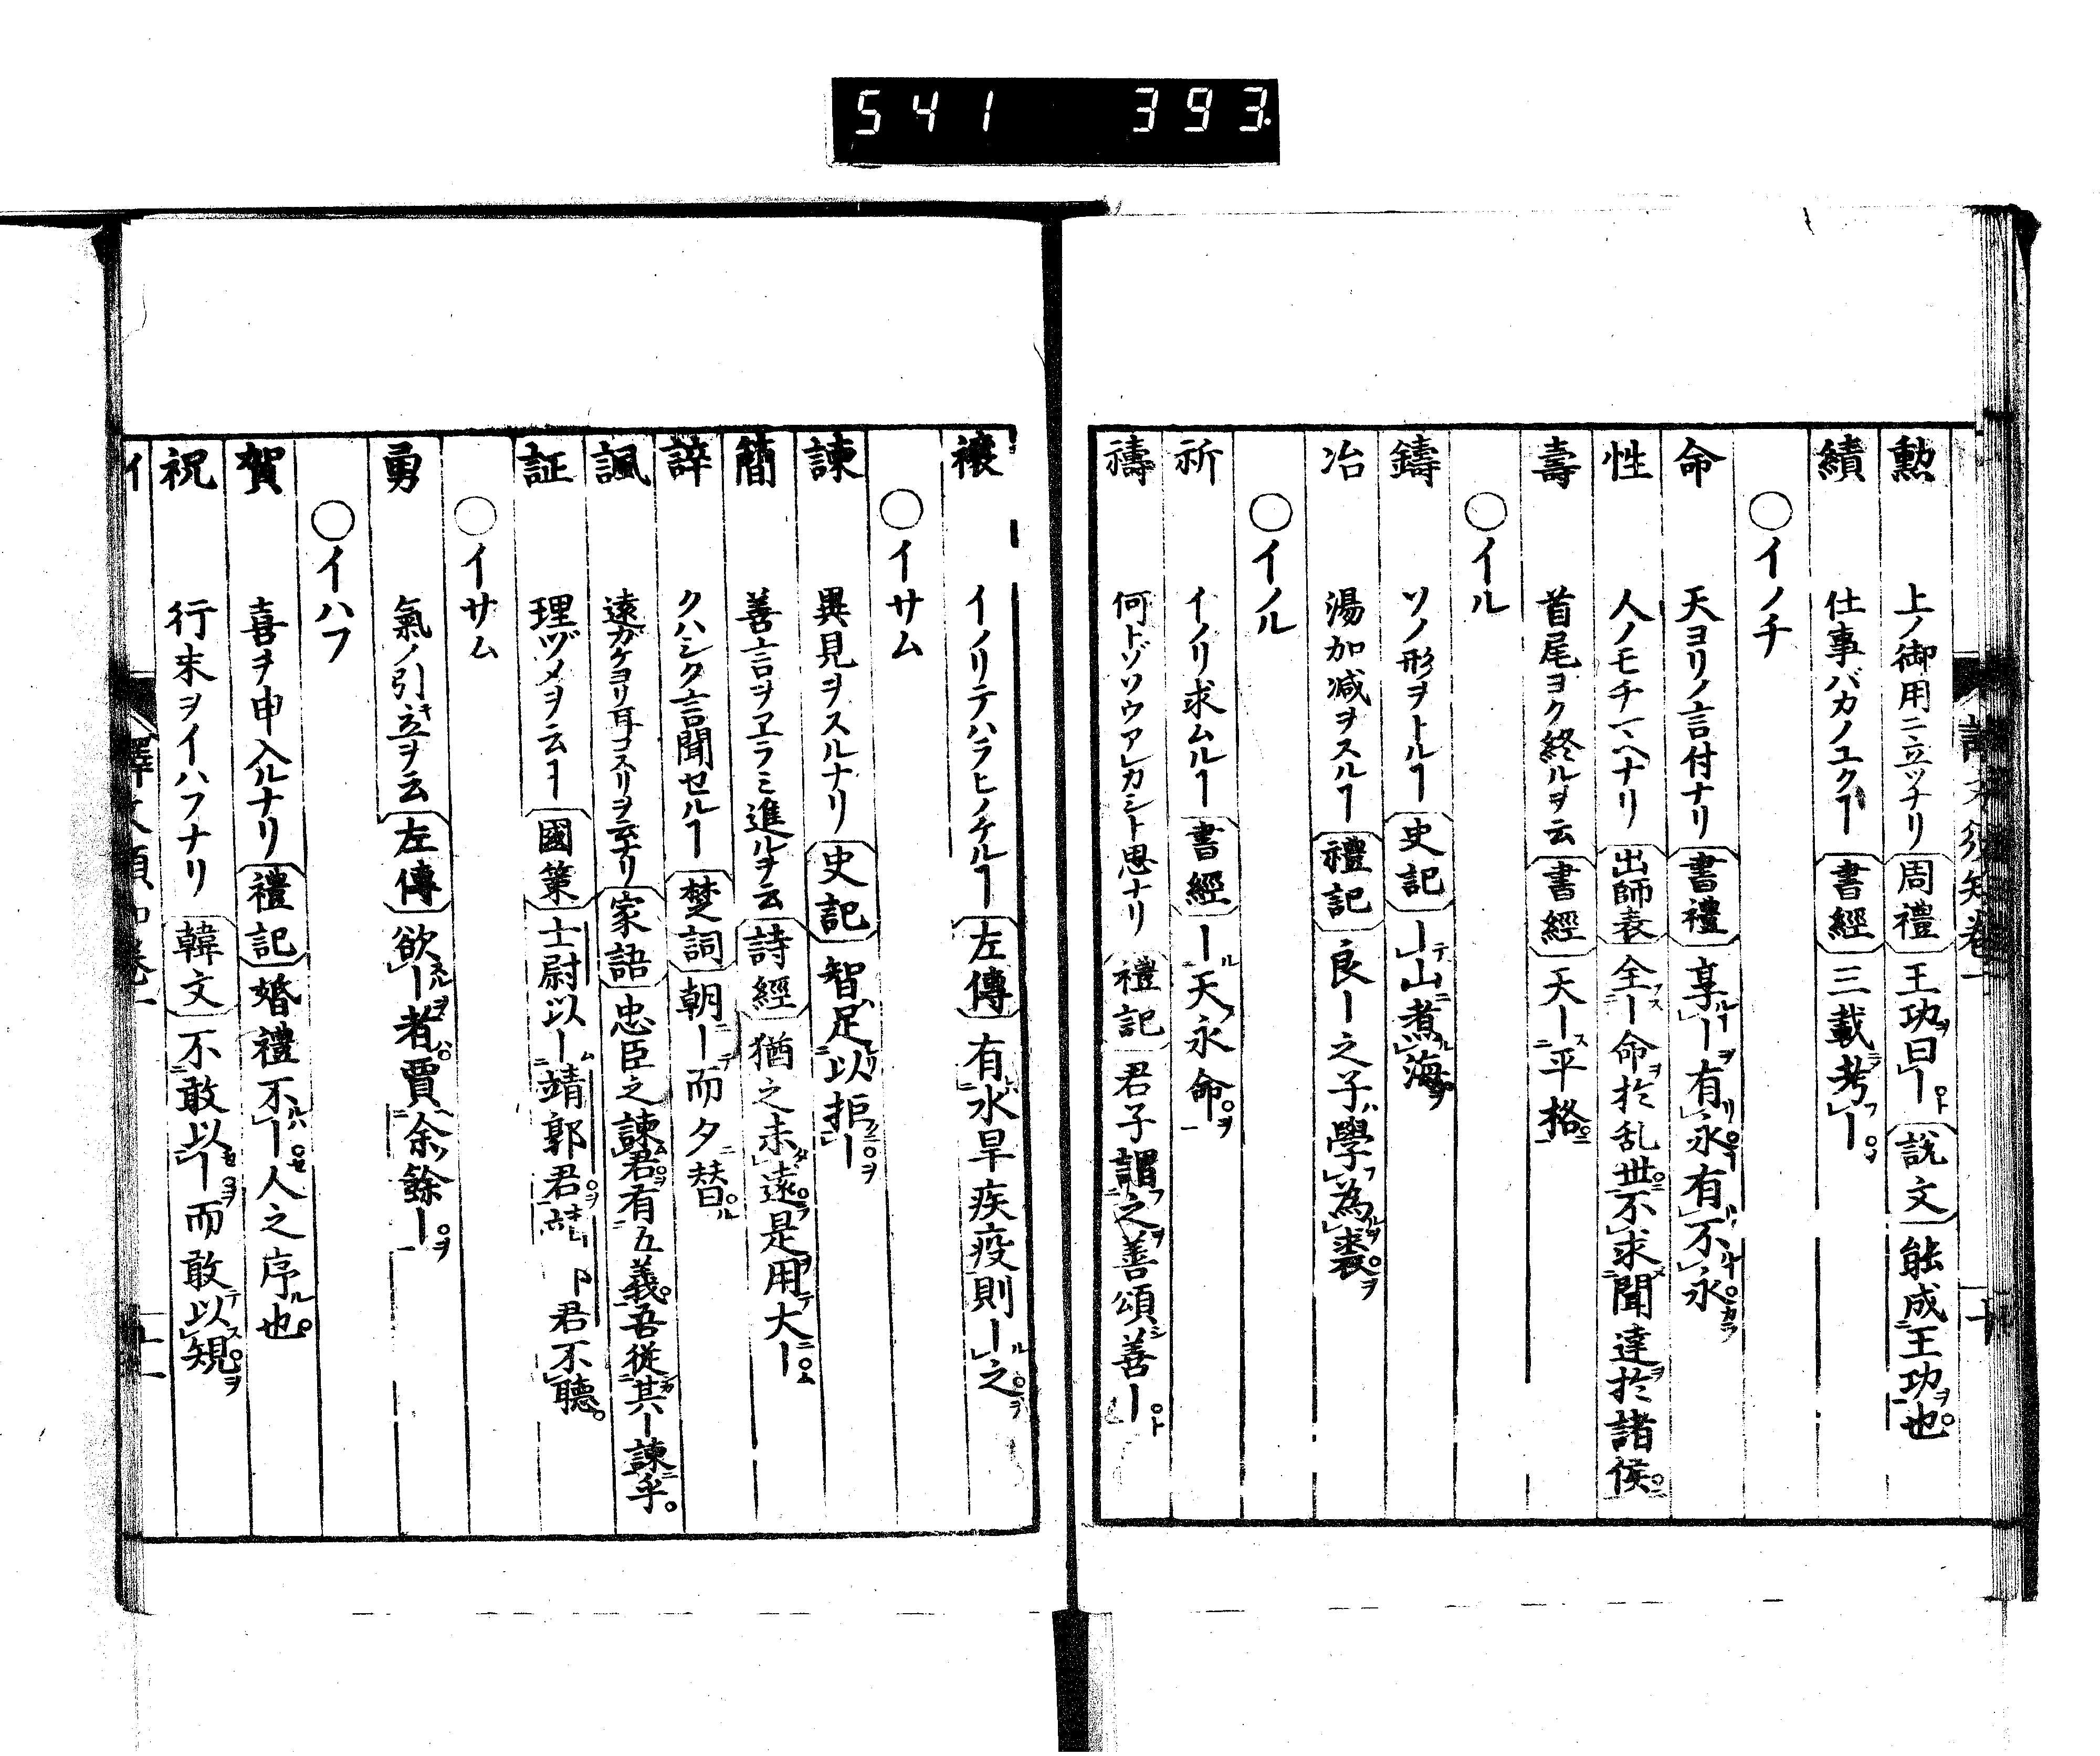 541 393
勲 上ノ御用ニ立ツナリ 周禮 王功ヲ曰ート 説文 能成王功ヲ也
績 仕事バカノユクヿ 書經 三載考ー
○イノチ
命 天ヨリノ言付ナリ 書禮 享ー有永有不永
性 人ノモチマヘナリ 出師表 全ー命ヲ於乱世不求聞達ヲ於諸侯
壽 首尾ヨク終ルヲ云 書經 天ー平格
○イル
鑄 ソノ形ヲトルヿ 史記 ー山煮海
冶 湯加減ヲスルヿ 禮記 良ー之子ハ學為裘ヲ
○イノル
祈 イノリ求ムルヿ 書經 ー天永命ヲ
禱 何トゾソウアレカシト思ナリ 禮記 君子謂之善頌善ート
禳 イノリテハラヒノケルヿ 左傳 有水旱疾疫則ー之
○イサム
諫 異見ヲスルナリ 史記 智足以拒ーヲ
簡 善言ヲヱラミ進ルヲ云 詩經 猶之未遠是用大ー
誶 クハシク言聞セルヿ 楚詞 朝ー而夕替
諷 遠ガケヨリ耳コスリヲ云ナリ 家語 忠臣之諫君有五義吾從其ー諫乎
証 理ヅメヲ云ヿ 國策 士尉以ー靖郭君 君不聽
○イサム
勇 氣ノ引立ヲ云 左傳 欲ー者賈余餘ーヲ
○イハフ
賀 喜ヲ申入ルナリ 禮記 婚禮不ー人之序也
祝 行末ヲイハフナリ 韓文 不敢以ー而敢以規